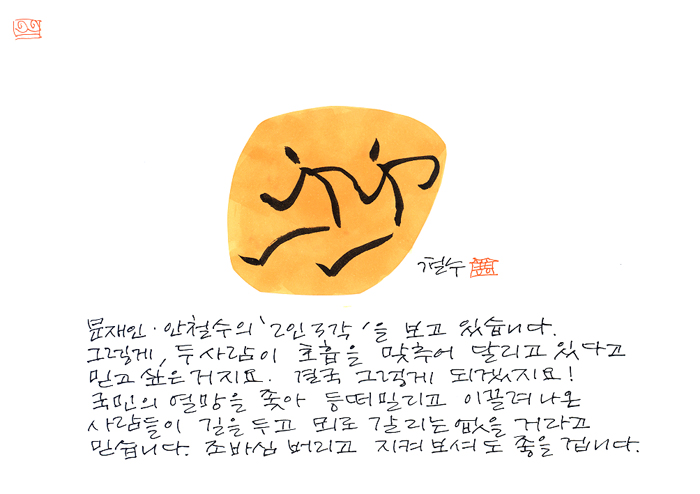 철수
문재인·안철수의 '2인3각'을 보고 있습니다.
그렇게, 두사람이 호흡을 맞추어 달리고 있다고
믿고 싶은 거지요. 결국 그렇게 되겠지요!
국민의 열망을 쫓아 등떠밀리고 이끌려 나온
사람들이 길을 두고 뫼로 갈 리는 없을 거라고
믿습니다. 조바심 버리고 지켜 보셔도 좋을 겁니다.